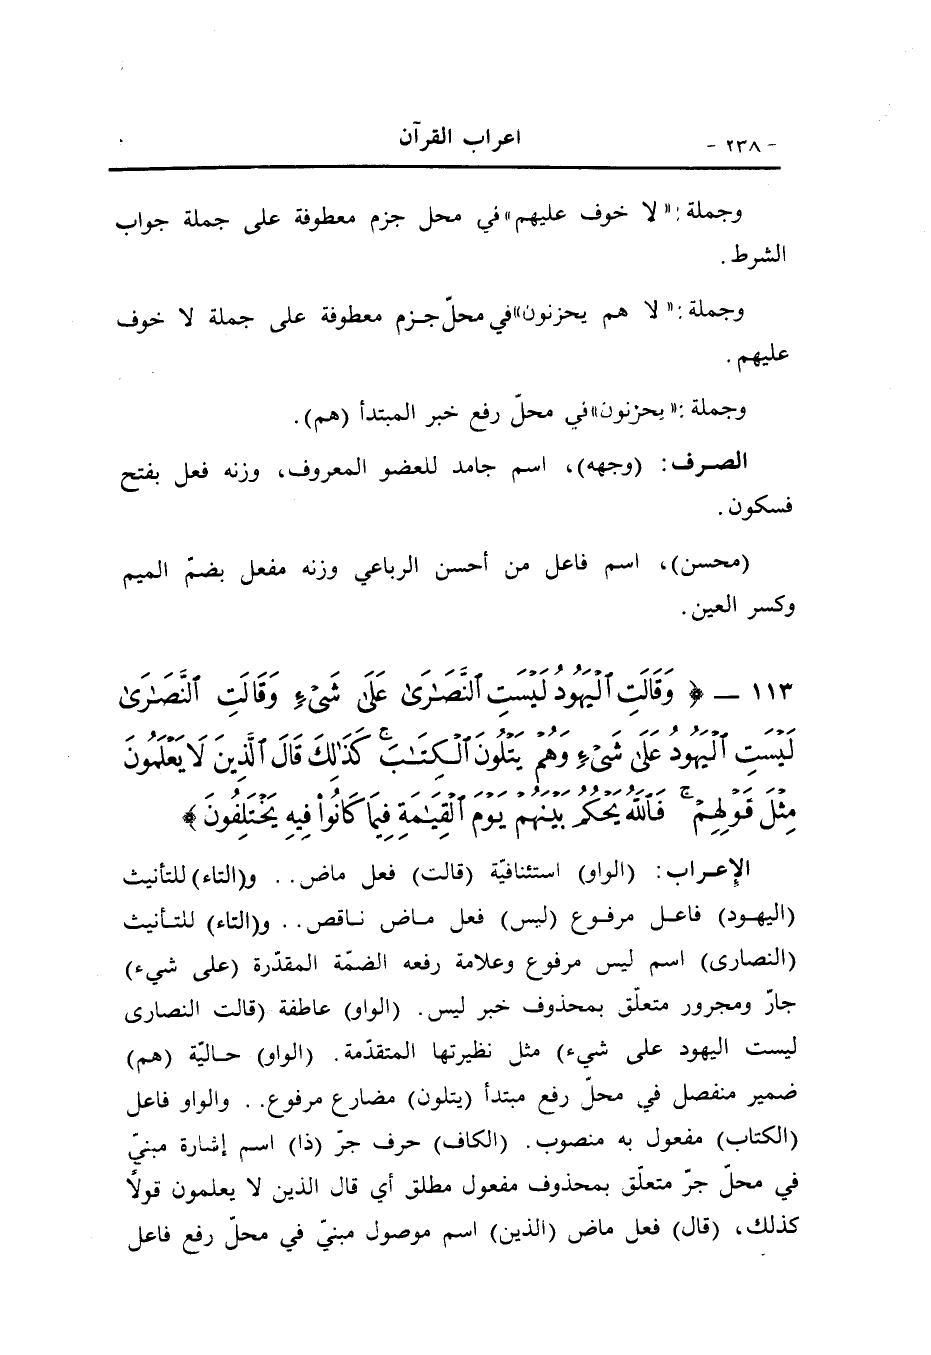 - ٢٣٨ -
اعراب القرآن
وجملة : « لا خوف عليهم » في محل جزم معطوفة على جملة جواب
الشرط .
وجملة : « لا هم يحزنون » في محلّ جزم معطوفة على جملة لا خوف
عليهم .
وجملة : « يحزنون » في محلّ رفع خبر المبتدأ (هم) .
الصرف : (وجهه)، اسم جامد للعضو المعروف، وزنه فعل بفتح
فسكون .
(محسن)، اسم فاعل من أحسن الرباعي وزنه مفعل بضمّ الميم
وكسر العين .
١١٣ ـ ﴿ وَقَالَتِ ٱلْيَهُودُ لَيْسَتِ ٱلنَّصَٰرَىٰ عَلَىٰ شَىْءٍ وَقَالَتِ ٱلنَّصَٰرَىٰ
لَيْسَتِ ٱلْيَهُودُ عَلَىٰ شَىْءٍ وَهُمْ يَتْلُونَ ٱلْكِتَٰبَ ۚ كَذَٰلِكَ قَالَ ٱلَّذِينَ لَا يَعْلَمُونَ
مِثْلَ قَوْلِهِمْ ۚ فَٱللَّهُ يَحْكُمُ بَيْنَهُمْ يَوْمَ ٱلْقِيَٰمَةِ فِيمَا كَانُوا۟ فِيهِ يَخْتَلِفُونَ ﴾
الإعراب : (الواو) استئنافيّة (قالت) فعل ماض . . و(التاء) للتأنيث
(اليهود) فاعل مرفوع (ليس) فعل ماض ناقص . . و(التاء) للتأنيث
(النصارى) اسم ليس مرفوع وعلامة رفعه الضمّة المقدّرة (على شيء)
جارّ ومجرور متعلّق بمحذوف خبر ليس . (الواو) عاطفة (قالت النصارى
ليست اليهود على شيء) مثل نظيرتها المتقدّمة . (الواو) حاليّة (هم)
ضمير منفصل في محلّ رفع مبتدأ (يتلون) مضارع مرفوع . . والواو فاعل
(الكتاب) مفعول به منصوب . (الكاف) حرف جرّ (ذا) اسم إشارة مبنيّ
في محلّ جرّ متعلّق بمحذوف مفعول مطلق أي قال الذين لا يعلمون قولاً
كذلك، (قال) فعل ماض (الذين) اسم موصول مبنيّ في محلّ رفع فاعل